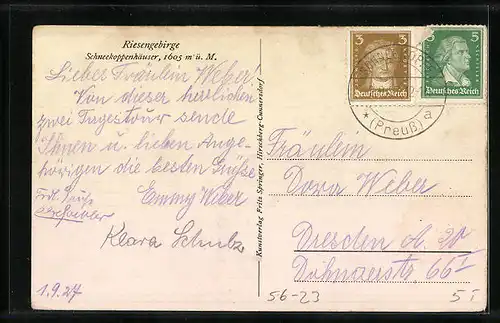 Riesengebirge
Schneekoppenhäuser, 1605 m ü. M.
Liebes Fräulein Weber!
Von dieser herrlichen
zwei Tagestour sende
Ihnen u. lieben Ange-
hörigen die besten Grüße
Emmy Weber
Klara Schulz
1.9.27
Kunstverlag Fritz Springer, Hirschberg-Cunnersdorf
3 3
Deutsches Reich
5 5
Deutsches Reich
* (Preuß) a
Fräulein
Dora Weber
Dresden A. 20
66 I
56-23